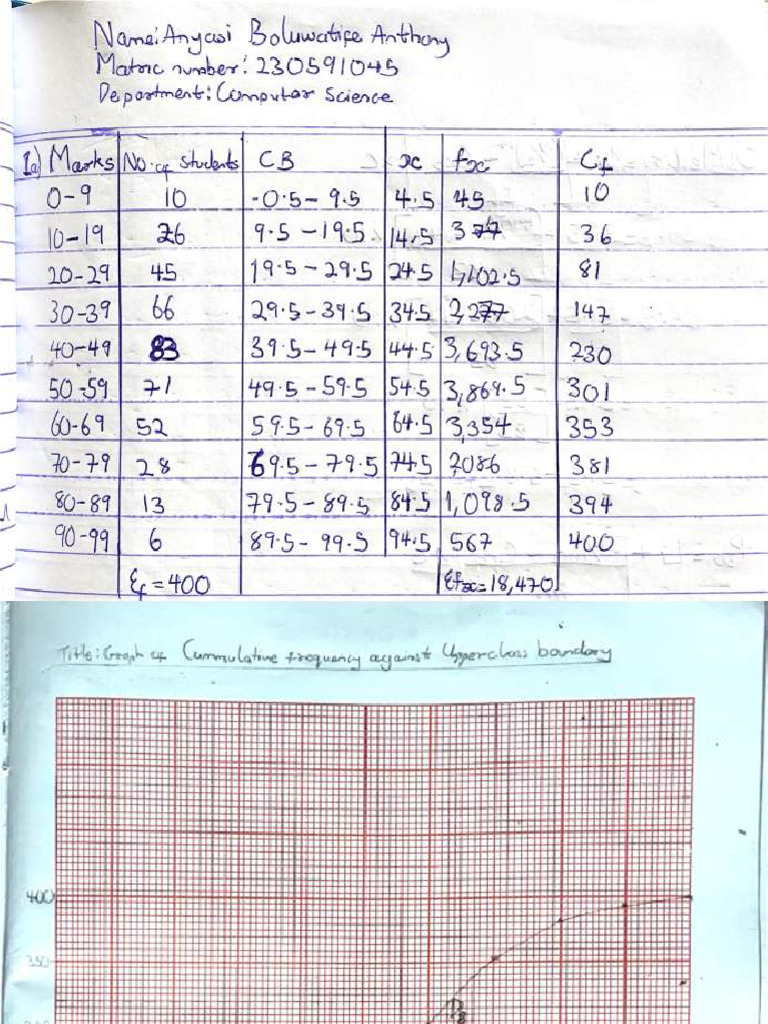 Name: Anyasi Boluwatife Anthony
Matric number: 230591045
Department: Computer Science
1a) Marks No. of students CB x fx Cf
0-9 10 -0.5 - 9.5 4.5 45 10
10-19 26 9.5 - 19.5 14.5 377 36
20-29 45 19.5 - 29.5 24.5 1,102.5 81
30-39 66 29.5 - 39.5 34.5 2,277 147
40-49 83 39.5 - 49.5 44.5 3,693.5 230
50-59 71 49.5 - 59.5 54.5 3,869.5 301
60-69 52 59.5 - 69.5 64.5 3,354 353
70-79 28 69.5 - 79.5 74.5 2086 381
80-89 13 79.5 - 89.5 84.5 1,098.5 394
90-99 6 89.5 - 99.5 94.5 567 400
Σf = 400 Σfx = 18,470
Title: Graph of Cummulative frequency against Upperclass boundary
400
350